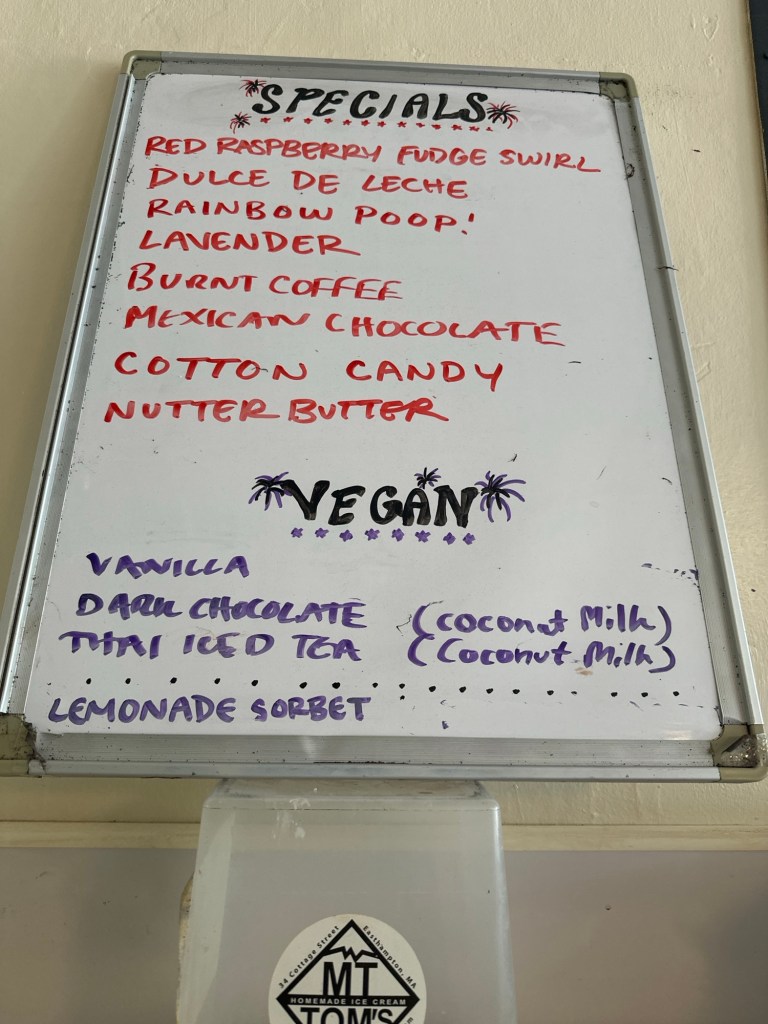 SPECIALS
RED RASPBERRY FUDGE SWIRL
DULCE DE LECHE
RAINBOW POOP!
LAVENDER
BURNT COFFEE
MEXICAN CHOCOLATE
COTTON CANDY
NUTTER BUTTER
VEGAN
VANILLA
DARK CHOCOLATE (COCONUT MILK)
THAI ICED TEA (COCONUT MILK)
LEMONADE SORBET
34 Cottage Street Easthampton, MA
MT
HOMEMADE ICE CREAM
TOM'S